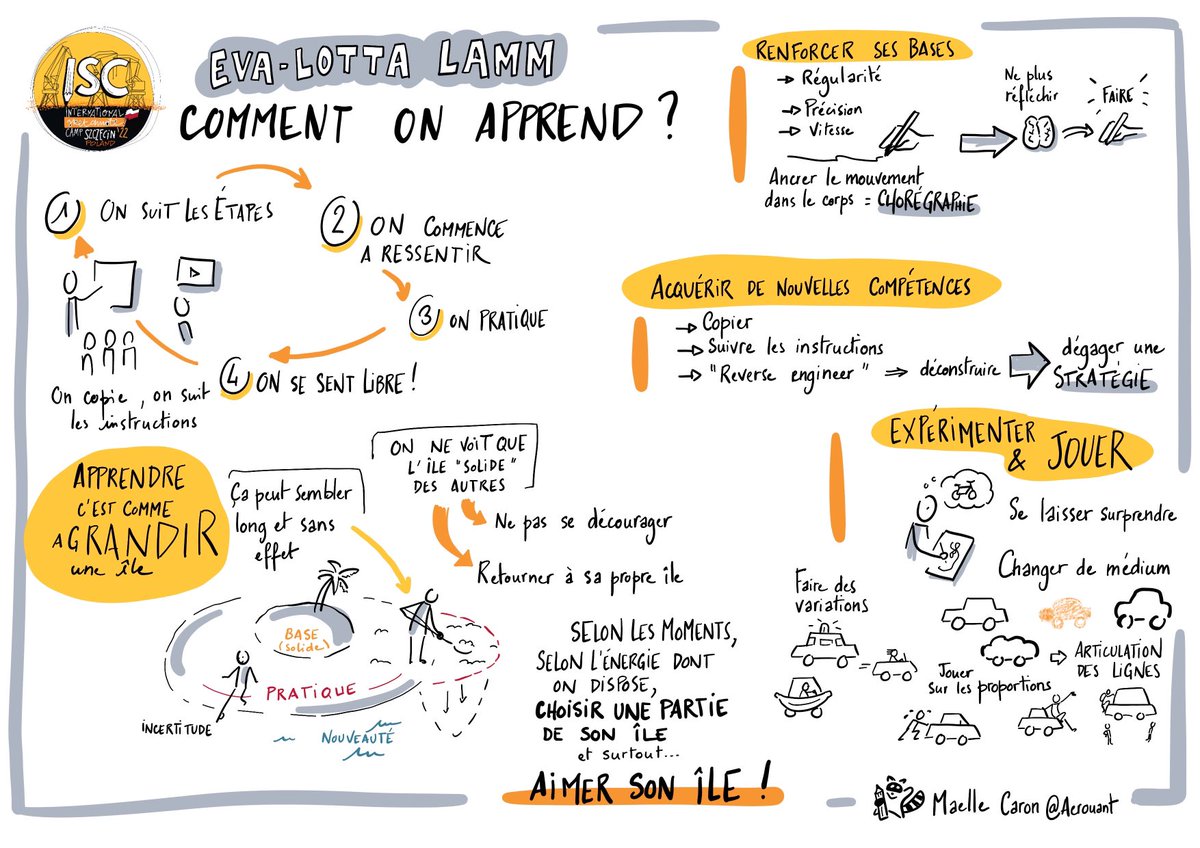 ISC
INTERNATIONAL
CAMP SZCZECIN '22
POLAND
EVA-LOTTA LAMM
COMMENT ON APPREND ?
1 ON SUIT LES ÉTAPES
2 ON COMMENCE
A RESSENTIR
3 ON PRATIQUE
4 ON SE SENT LIBRE !
On copie, on suit
les instructions
RENFORCER SES BASES
→ Régularité
→ Précision
→ Vitesse
Ne plus
réfléchir
FAIRE
Ancrer le mouvement
dans le corps = CHORÉGRAPHIE
ACQUÉRIR DE NOUVELLES COMPÉTENCES
→ Copier
→ Suivre les instructions
→ "Reverse engineer" ⇒ déconstruire
dégager une
STRATÉGIE
APPRENDRE
C'EST COMME
AGRANDIR
une île
Ça peut sembler
long et sans
effet
ON NE VOIT QUE
L'ÎLE "SOLIDE"
DES AUTRES
Ne pas se décourager
Retourner à sa propre île
BASE
(solide)
PRATIQUE
INCERTITUDE
NOUVEAUTÉ
SELON LES MOMENTS,
SELON L'ÉNERGIE DONT
ON DISPOSE,
CHOISIR UNE PARTIE
DE SON ÎLE
et surtout...
AIMER SON ÎLE !
EXPÉRIMENTER
& JOUER
Se laisser surprendre
Changer de médium
Faire des
variations
Jouer
sur les proportions
⇒ ARTICULATION
DES LIGNES
Maelle Caron @Aerouant